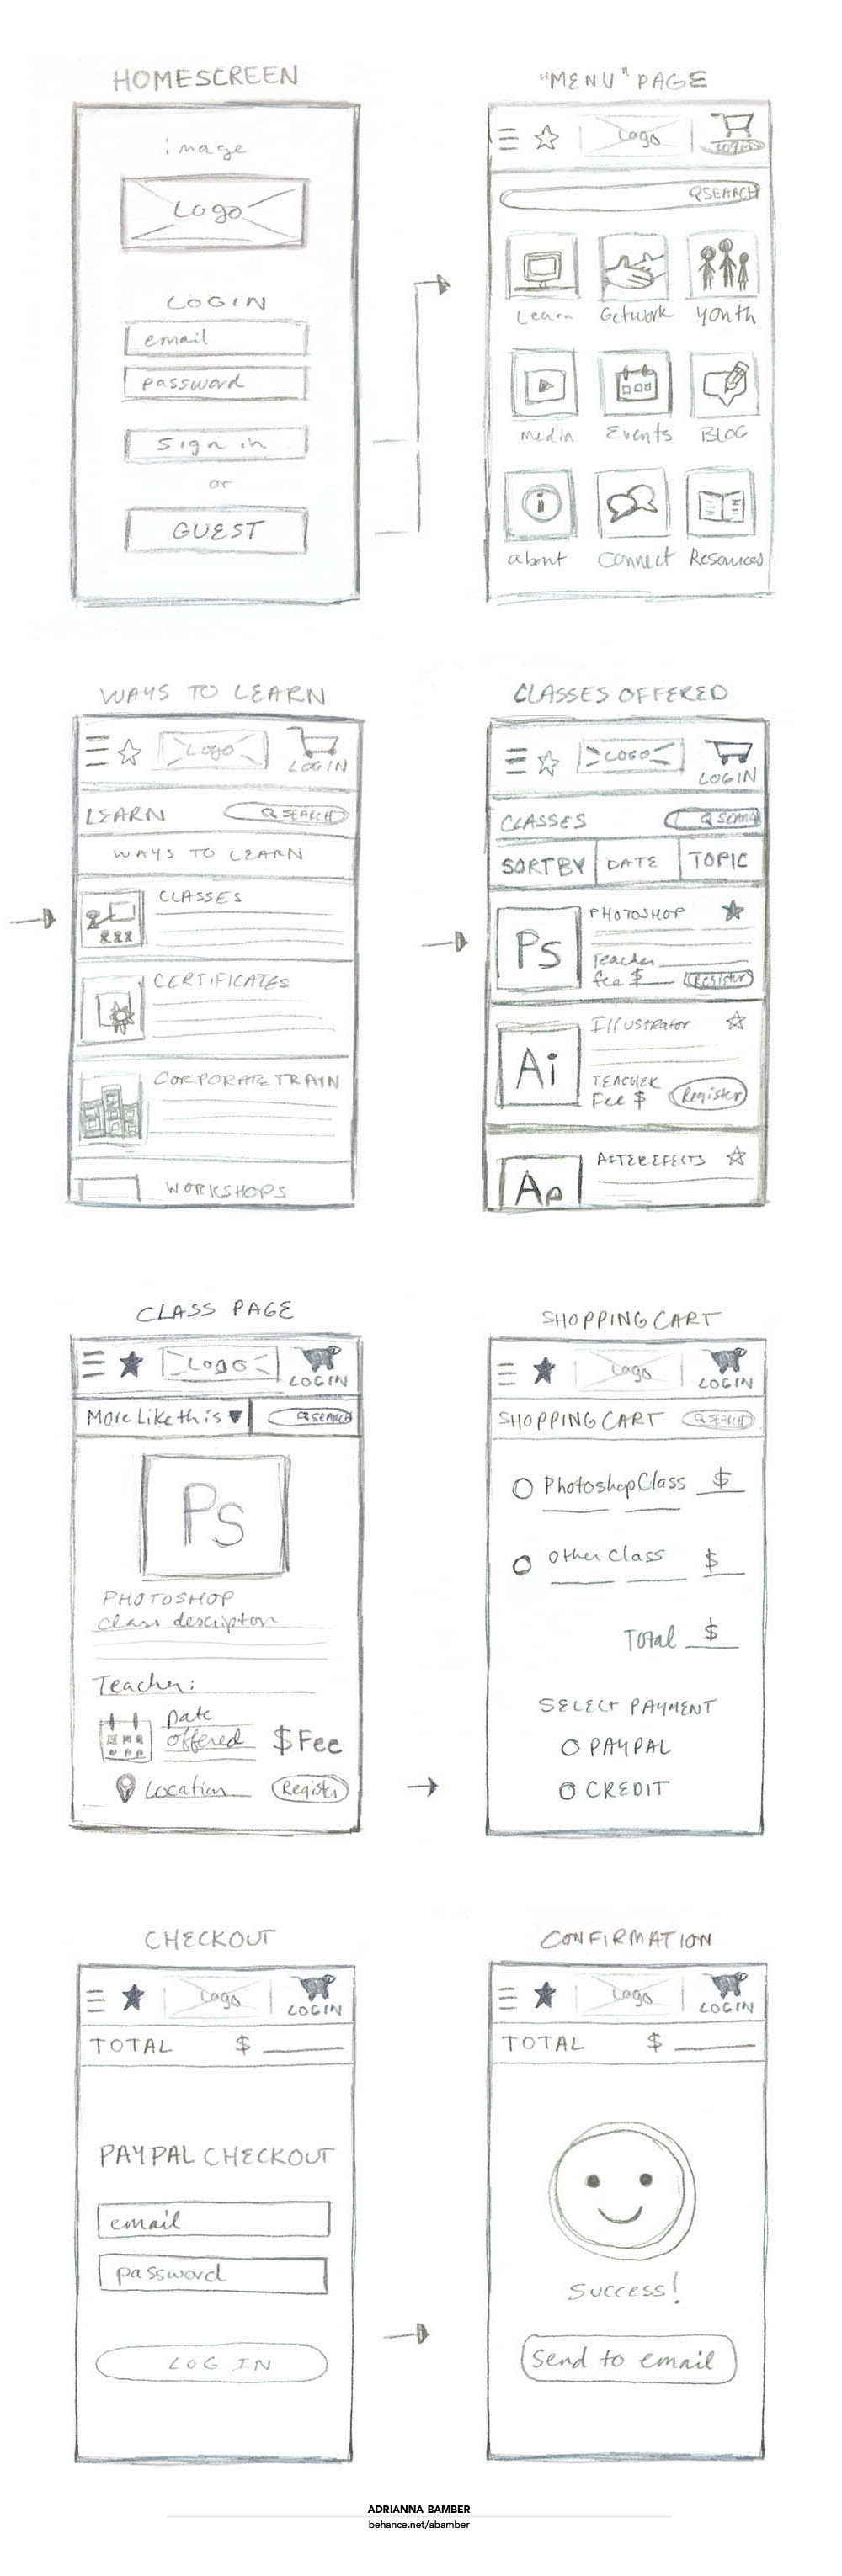 HOMESCREEN
image
Logo
LOGIN
email
password
Sign in
or
GUEST
"MENU" PAGE
Logo
LOGIN
SEARCH
Learn Getwork Youth
Media Events BLOG
about Connect Resources
WAYS TO LEARN
Logo
LOGIN
LEARN SEARCH
WAYS TO LEARN
CLASSES
CERTIFICATES
CORPORATE TRAIN
WORKSHOPS
CLASSES OFFERED
LOGO
LOGIN
CLASSES SEARCH
SORT BY DATE TOPIC
PHOTOSHOP
Ps
Teacher
fee $ Register
Illustrator
Ai
TEACHER
Fee $ Register
AFTEREFECTS
Ae
CLASS PAGE
LOGO
LOGIN
More Like this SEARCH
Ps
PHOTOSHOP
class description
Teacher:
Date
offered $ Fee
Location Register
SHOPPING CART
Logo
LOGIN
SHOPPING CART SEARCH
Photoshop Class $
Other Class $
Total $
SELECT PAYMENT
PAYPAL
CREDIT
CHECKOUT
Logo
LOGIN
TOTAL $
PAYPAL CHECKOUT
email
password
LOG IN
CONFIRMATION
Logo
LOGIN
TOTAL $
Success!
Send to email
ADRIANNA BAMBER
behance.net/abamber